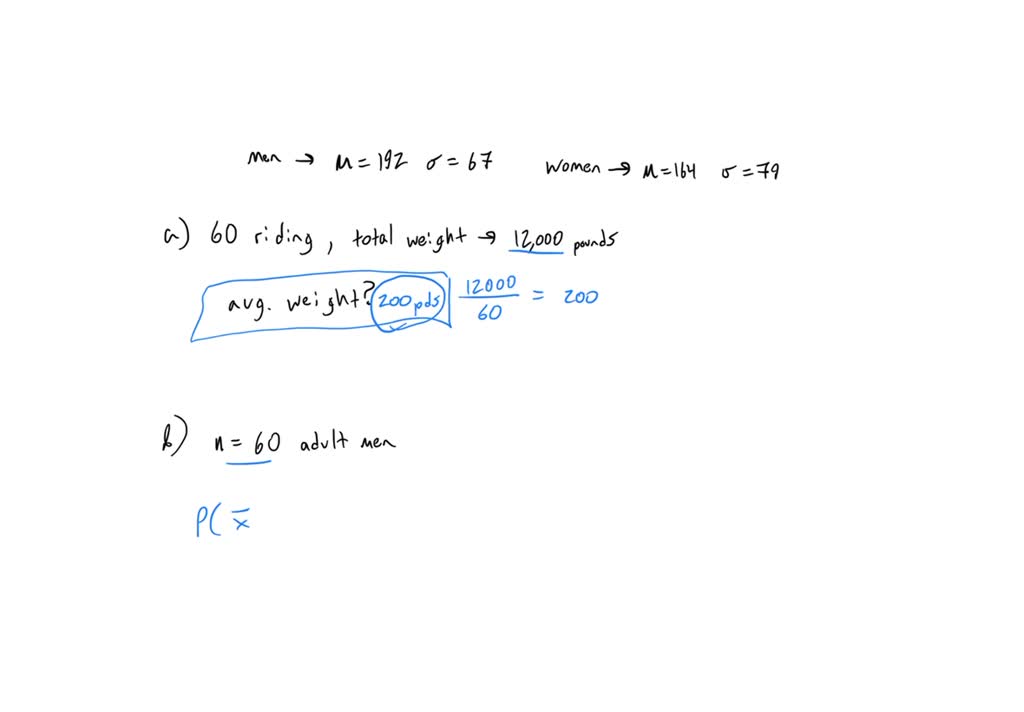 Men → μ = 192 σ = 67 Women → μ = 164 σ = 79
a) 60 riding, total weight → 12,000 pounds
avg. weight? 200 pds 12000/60 = 200
b) n = 60 adult men
P( x̄